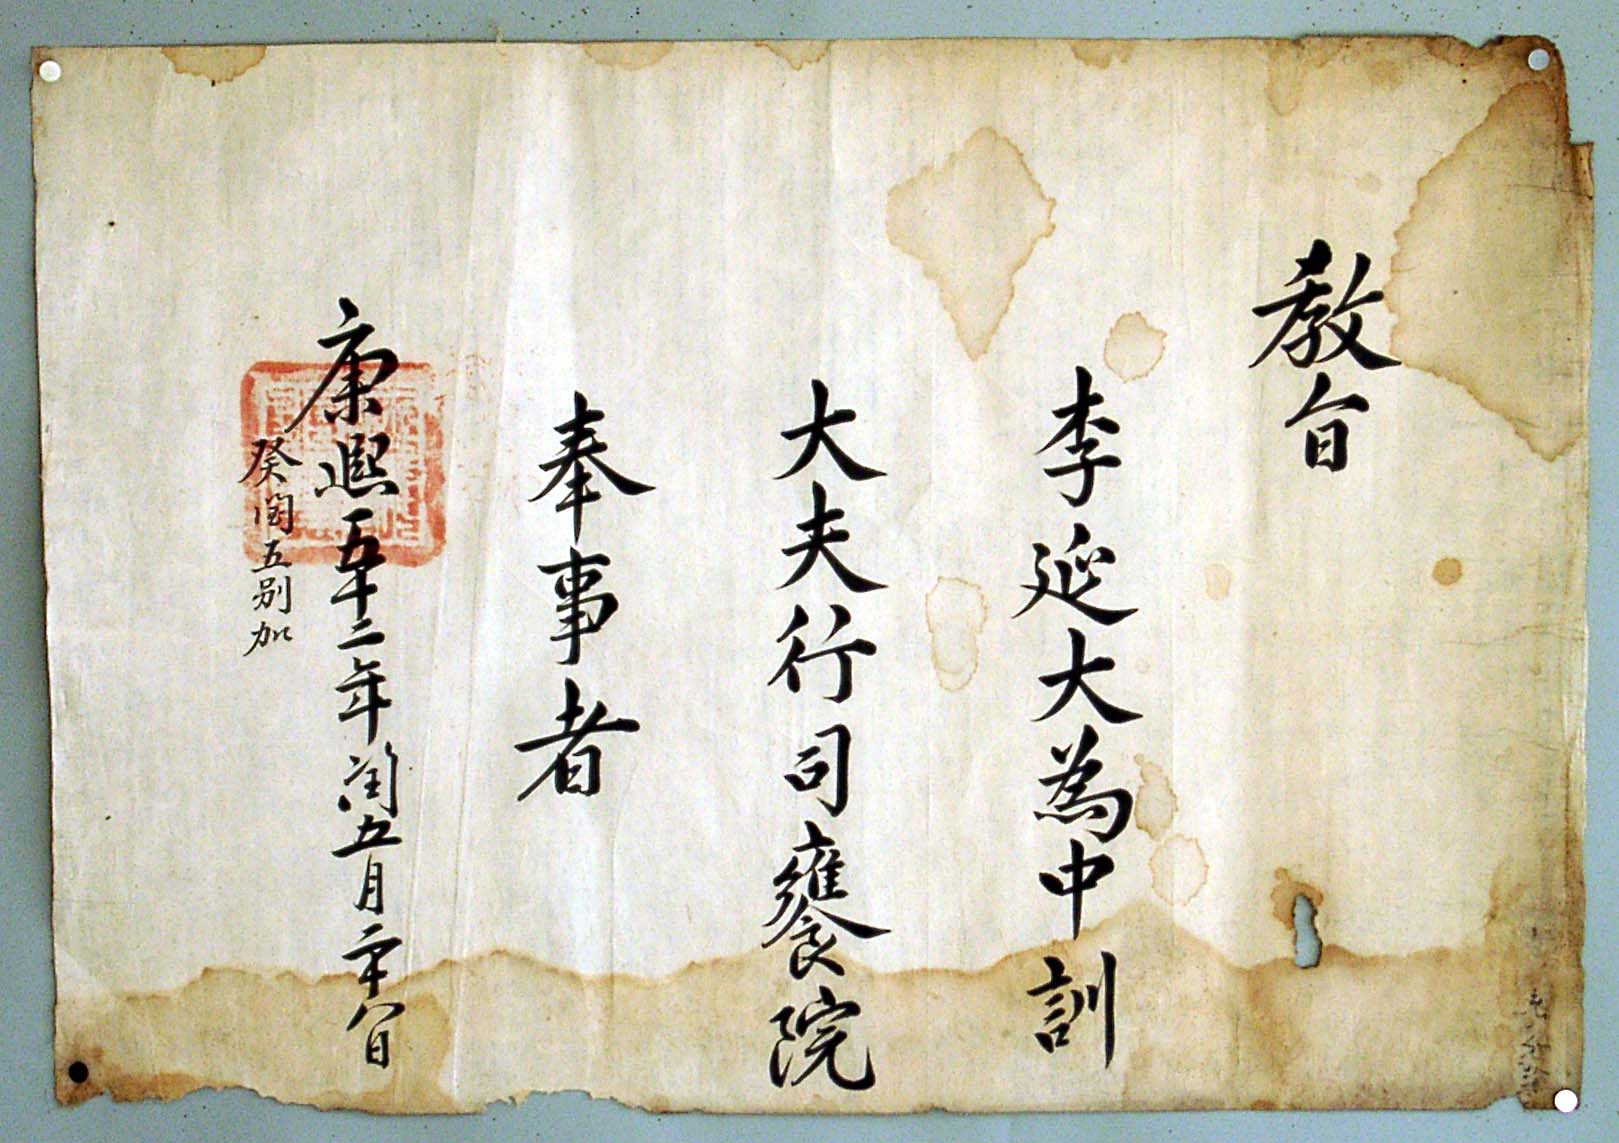 敎旨
李延大為中訓
大夫行司饔院
奉事者
康熙五十二年閏五月二十八日
癸閏五别加